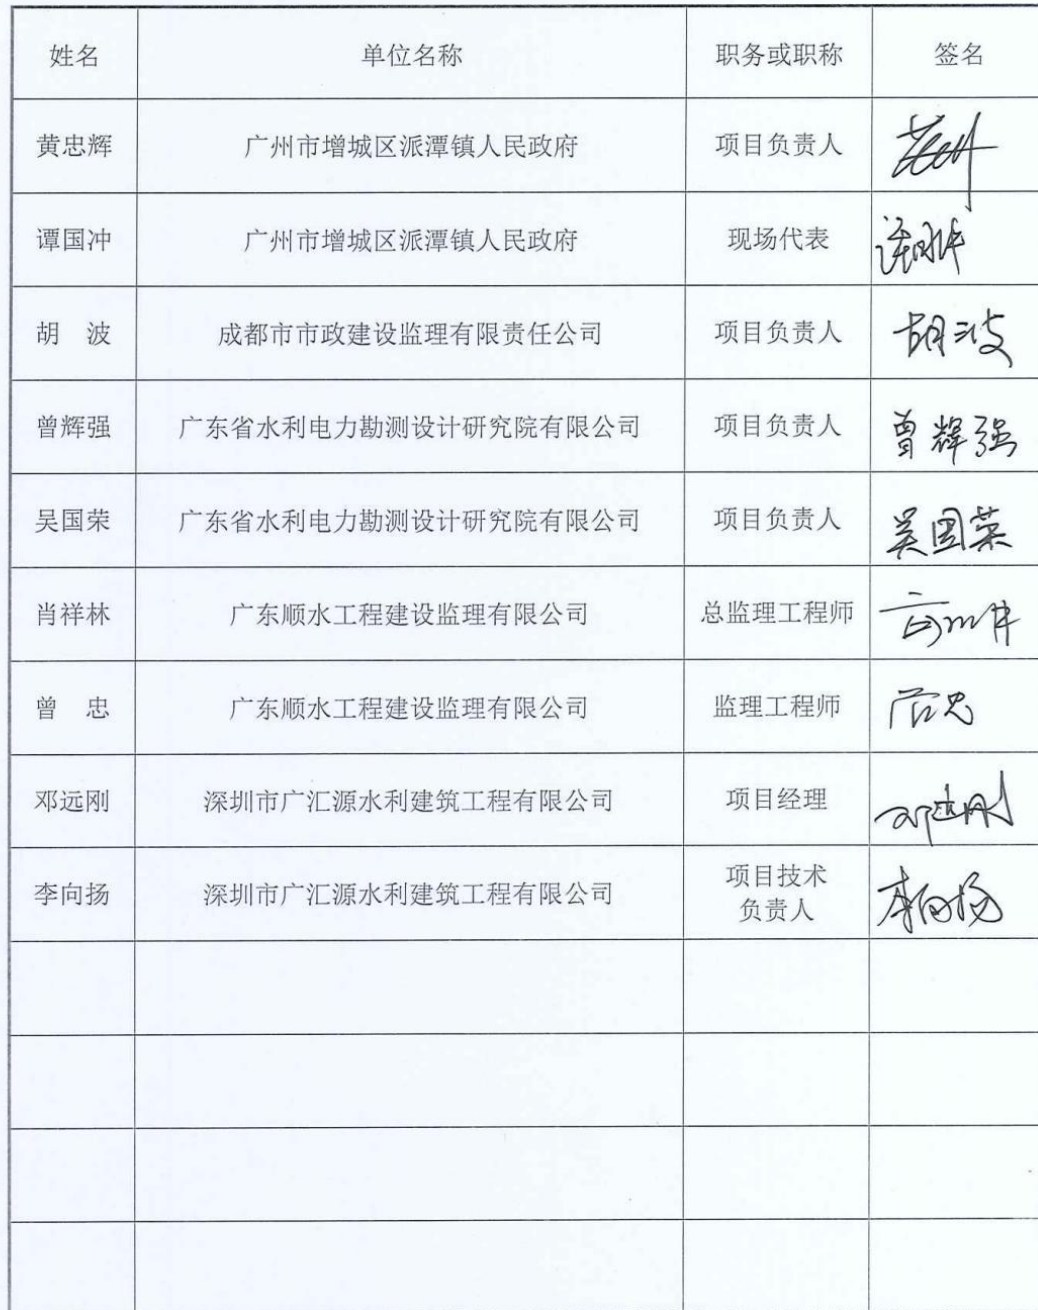 姓名 单位名称 职务或职称 签名
黄忠辉 广州市增城区派潭镇人民政府 项目负责人
谭国冲 广州市增城区派潭镇人民政府 现场代表
胡 波 成都市市政建设监理有限责任公司 项目负责人 胡波
曾辉强 广东省水利电力勘测设计研究院有限公司 项目负责人 曾辉强
吴国荣 广东省水利电力勘测设计研究院有限公司 项目负责人 吴国荣
肖祥林 广东顺水工程建设监理有限公司 总监理工程师
曾 忠 广东顺水工程建设监理有限公司 监理工程师
邓远刚 深圳市广汇源水利建筑工程有限公司 项目经理 邓远刚
李向扬 深圳市广汇源水利建筑工程有限公司 项目技术
负责人 李向扬